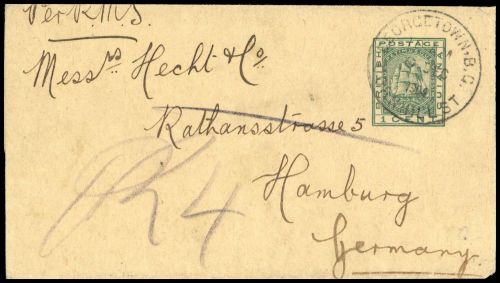 Per R.M.S.
Messrs Hecht & Co.
Rathansstrasse 5
Hamburg
Germany.
R 4
BRITISH
POSTAGE
GUIANA
1 CENT
GEORGETOWN, B.G.
EST